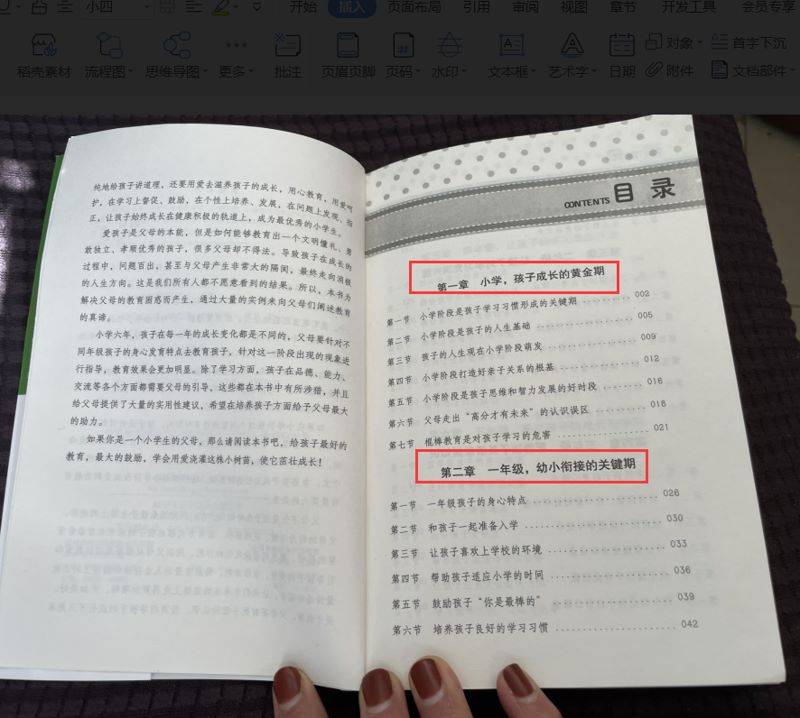 小四
开始 插入 页面布局 引用 审阅 视图 章节 开发工具 会员专享
稻壳素材 流程图 思维导图 更多 批注 页眉页脚 页码 水印 文本框 艺术字 日期 对象 附件 首字下沉 文档部件
纯地给孩子讲道理，还要用爱去滋养孩子的成长，用心教育，用爱呵
护，在学习上督促、鼓励，在个性上培养、发展，在问题上发现、指
正，让孩子始终成长在健康积极的轨道上，成为最优秀的小学生。
爱孩子是父母的本能，但是如何能够教育出一个文明懂礼、勇
敢独立、孝顺优秀的孩子，很多父母却不得法。导致孩子在成长的
过程中，问题百出，甚至与父母产生非常大的隔阂，最终走向消极
的人生方向。这是我们所有人都不愿意看到的结果。所以，本书为
解决父母的教育困惑而产生，通过大量的实例来向父母们阐述教育
的真谛。
小学六年，孩子在每一年的成长变化都是不同的，父母要针对不
同年级孩子的身心发育特点去教育孩子，针对这一阶段出现的现象进
行指导，教育效果会更加明显。除了学习方面，孩子在品德、能力、
交流等各个方面都需要父母的引导，这些都在本书中有所涉猎，并且
给父母提供了大量的实用性建议，希望在培养孩子方面给予父母最大
的助力。
如果你是一个小学生的父母，那么请阅读本书吧，给孩子最好的
教育，最大的鼓励，学会用爱浇灌这株小树苗，使它茁壮成长！
CONTENTS 目 录
第一章 小学，孩子成长的黄金期
第一节 小学阶段是孩子学习习惯形成的关键期 002
第二节 小学阶段是孩子的人生基础 005
第三节 孩子的人生现在小学阶段萌发 009
第四节 小学阶段打造好亲子关系的根基 012
第五节 小学阶段是孩子思维和智力发展的好时段 016
第六节 父母走出“高分才有未来”的认识误区 018
第七节 棍棒教育是对孩子学习的危害 021
第二章 一年级，幼小衔接的关键期
第一节 一年级孩子的身心特点 026
第二节 和孩子一起准备入学 030
第三节 让孩子喜欢上学校的环境 033
第四节 帮助孩子适应小学的时间 036
第五节 鼓励孩子“你是最棒的” 039
第六节 培养孩子良好的学习习惯 042